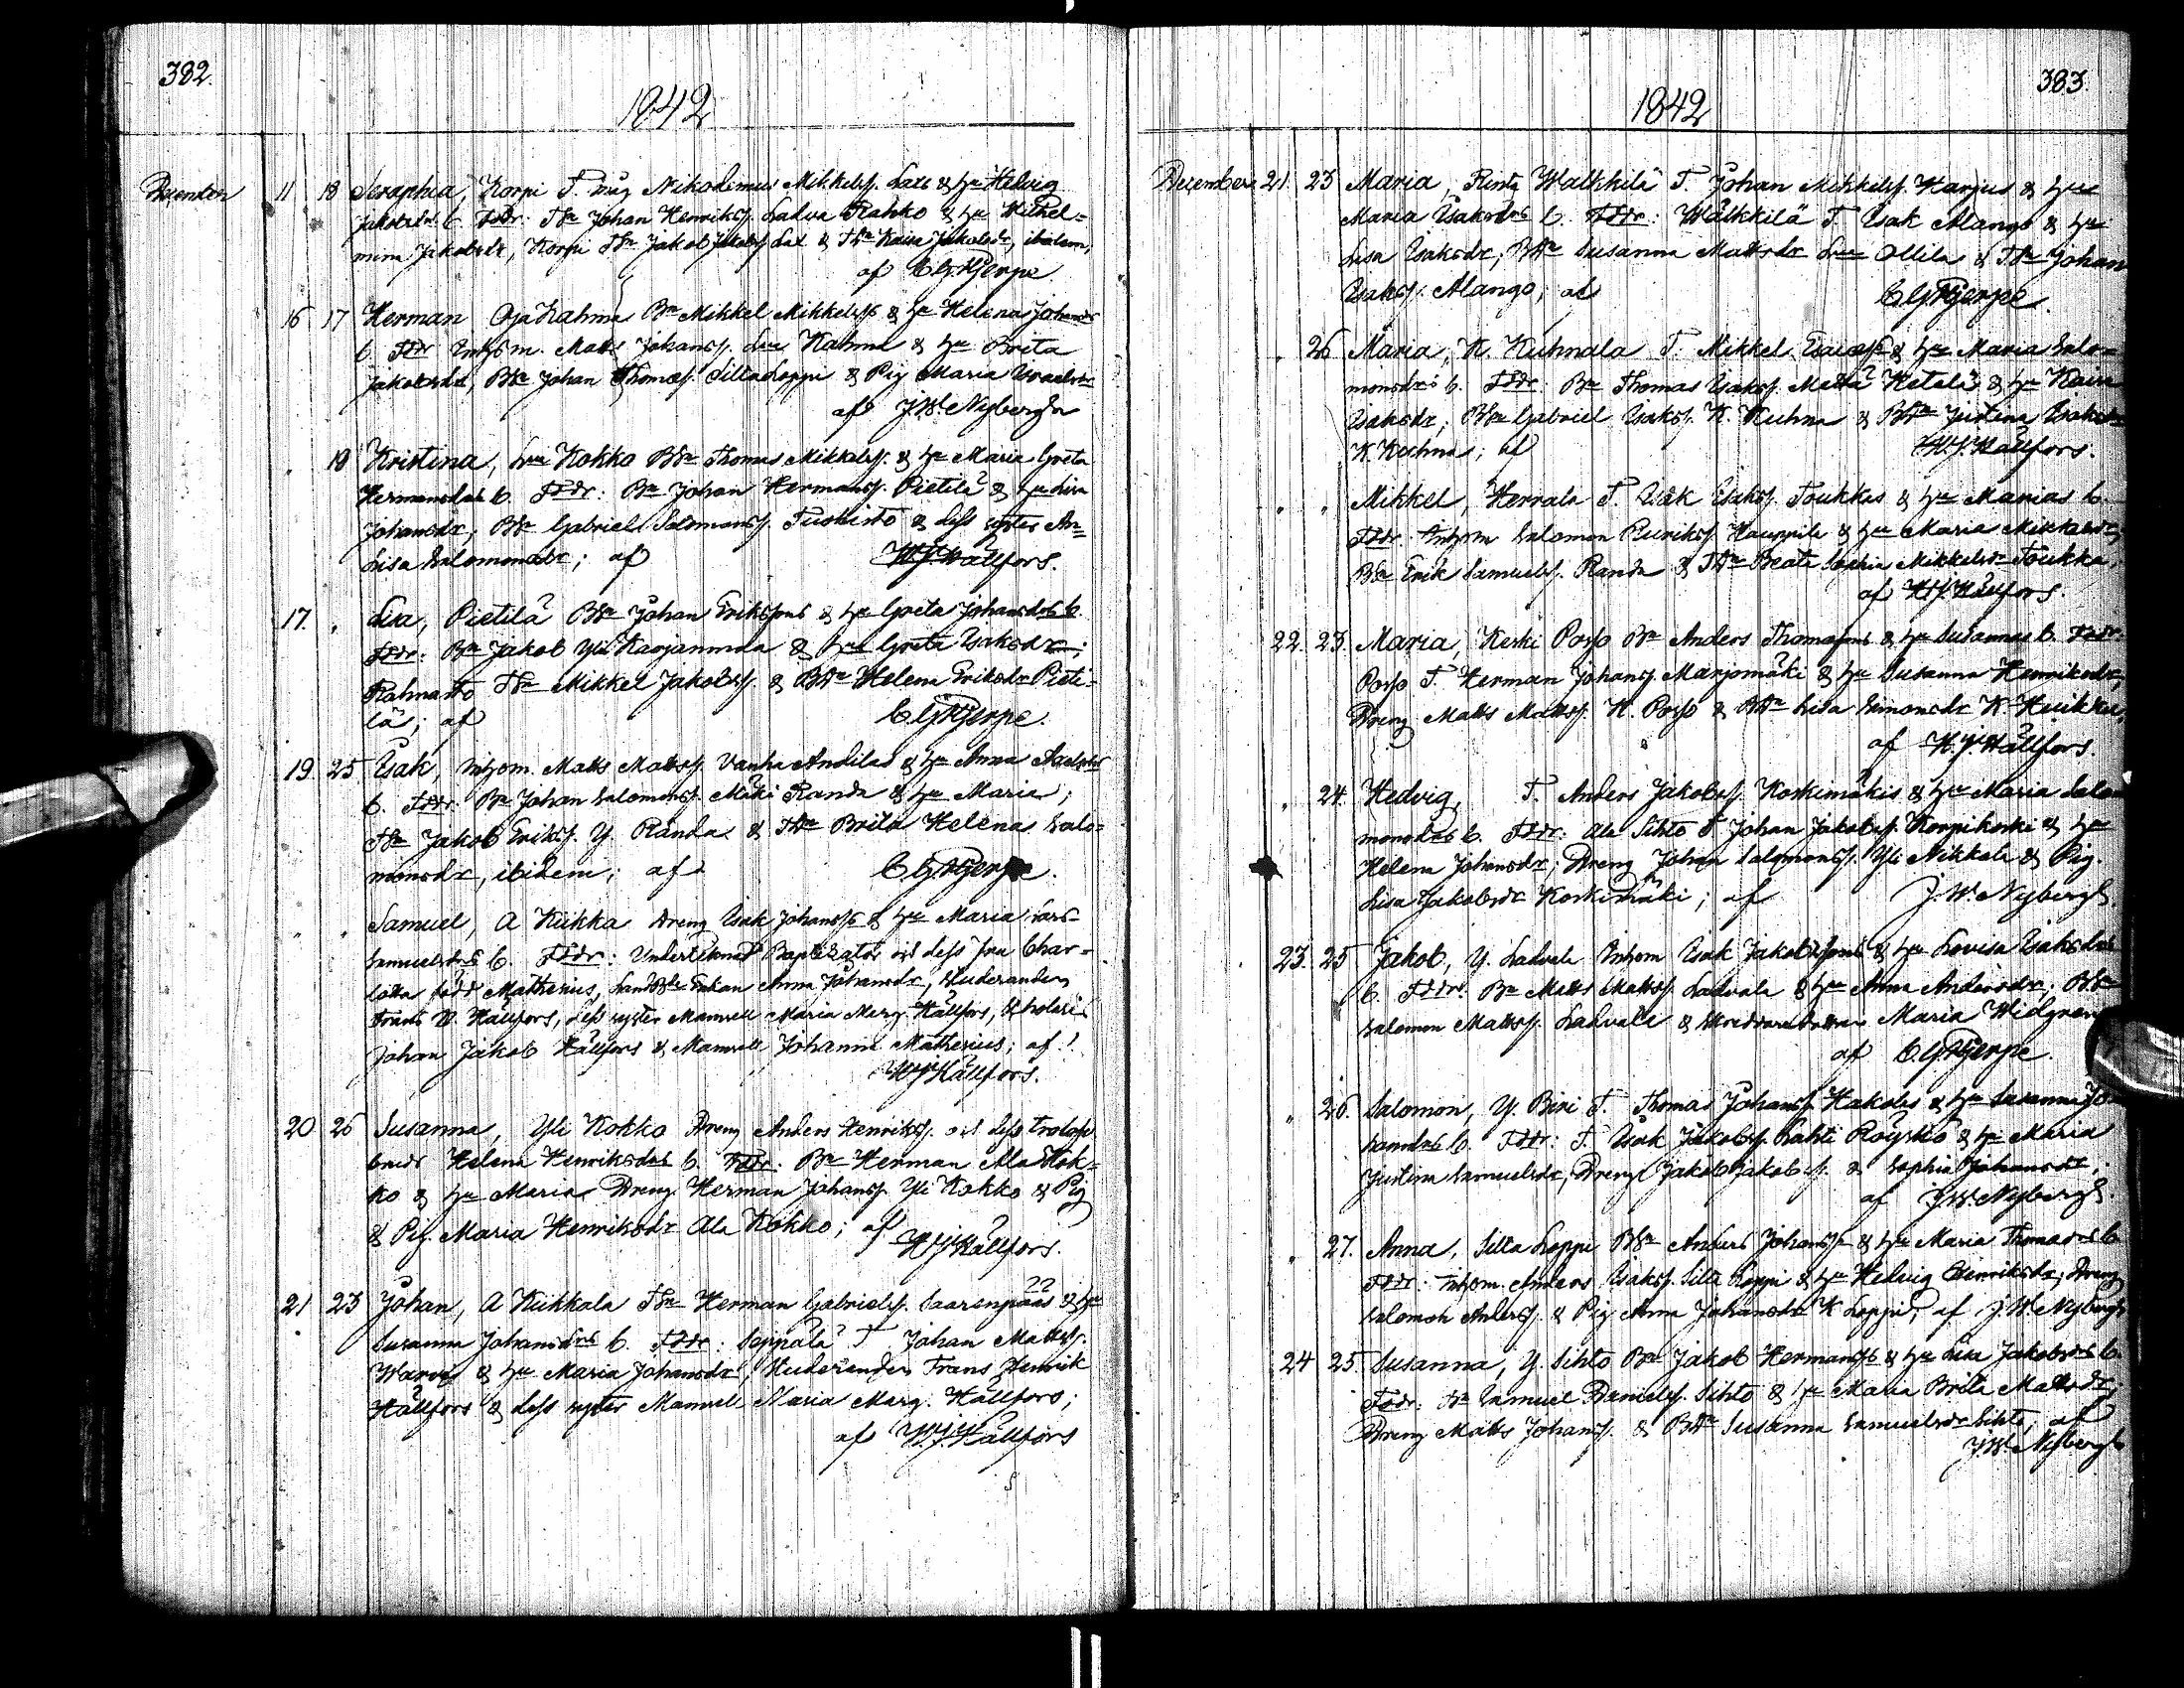 382.
1842
December 11 18 Seraphia, Korpi T. måg Nikodemus Mikkelss. Lax & hu Hedvig
Jakobsdrs b. Fddr: TSn Johan Henrikss. Ladva Rahko & hu Wilhel-
mina Jakobsdr, Korpi TSn Jakob Jakobss. Lax & TDr Kaisa Jakobsdr, ibidem,
af C G Hjerpe
16 17 Herman Oja Kahma Bn Mikkel Mikkelss & hu Helena Johansdrs
b. Fddr Inhsm. Matts Johanss. Kahma & hu Brita
Jakobsdr, BSn Johan Thomæss. Silta Loppi & Pig Maria Israelsdr
af J.W. Nybergh
" 18 Kristina, Kokko BSn Thomas Mikkelss. & hu Maria Greta
Hermansdrs b. Fddr: Bn Johan Hermanss. Pietilä & hu Lisa
Johansdr, BSn Gabriel Salomonss. Tuohisto & dess syster An-
Lisa Salomonsdr; af H J Hällfors.
17. " Lisa, Pietilä BSn Johan Erikssons & hu Greta Johansdrs b.
Fddr: Bn Jakob Yli Karjanmaa & hu Greta Isaksdr;
Rahnasto TSn Mikkel Jakobss. & BDr Helena Eriksdr Pieti-
lä; af C G Hjerpe.
19 25 Isak, Inhsm. Matts Mattss. Vanha Andilas & hu Anna Axelsdrs
b. Fddr: Bn Johan Salomonss. Mäki Randa & hu Maria;
TSn Jakob Erikss. Y. Randa & TDr Brita Helena Salo-
monsdr, ibidem; af C G Hjerpe.
" " Samuel, A Kiikka Dreng Isak Johanss & hu Maria
Samuelsdrs b. Fddr: Undertecknad Baptizator och dess fru Char-
lotta född Mathesius, Enkan Anna Johansdr, Studeranden
Frans H. Hällfors, dess syster Mamsell Maria Marg. Hällfors, Scholaris
Johan Jakob Hällfors & Mamsell Johanna Mathesius; af
H J Hällfors.
20 26 Susanna, Yli Kokko Dreng Anders Henrikss. och dess trolof-
vade Helena Henriksdrs b. Fddr: Bn Herman Ala Kok-
ko & hu Maria Dreng Herman Johanss. Yli Kokko & Pig
& Pig. Maria Henriksdr Ala Kokko; af
H J Hällfors.
21 23 Johan, A Kiikkala TSn Herman Gabrielss. Saarenpääs & hu
Susanna Johansdrs b. Fddr: Seppälä T Johan Mattss.
& hu Maria Johansdr, Studeranden Frans Henrik
Hällfors & dess syster Mamsell Maria Marg. Hällfors;
af H J Hällfors
383.
1842
December 21 23 Maria, Rintа Walkkilä T. Johan Mikkelss. Harjus & hu
Maria Isaksdrs b. Fddr: Walkkilä T. Isak Alango & hu
Lisa Isaksdr, BDr Susanna Mattsdr Ollila & TSn Johan
Isakss. Alango; af C G Hjerpe.
" 26 Maria, K. Kuhnala T. Mikkel Esaiæss & hu Maria Salo-
monsdrs b. Fddr: Bn Thomas Isakss. Hetala & hu Kaisa
Isaksdr, BSn Gabriel Isakss. K. Kuhna & BDr Justina Isaksdr
K. Kuhna; af H.J. Hällfors.
" " Mikkel, Herrala T. Isak Isakss. Toukkas & hu Marias b.
Fddr: Inhsm Salomon Hauppila & hu Maria Mikkelsdr,
BSn Erik Samuelss. Randa & TDr Beata Sophia Mikkelsdr Toukka,
af H J Hällfors.
22. 23. Maria, Keski Posso Bn Anders Thomæsons & hu Susannas b. Fddr:
Posso T. Herman Johanss. Marjomäki & hu Susanna Henriksdr,
Dreng Matts Mattss. K. Posso & BDr Lisa Simonsdr K.
af H. J Hällfors.
" 24. Hedvig, T. Anders Jakobss. Koskimäkis & hu Maria Salo-
monsdrs b. Fddr: Ala Sihto T Johan Jakobss. Korpikoski & hu
Helena Johansdr; Dreng Johan Salomonss. Yli Nikkola & Pig.
Lisa Jakobsdr Koskimäki; af J. W. Nybergh.
23. 25 Jakob, Y. Ladvala Inhsm Isak Jakobssons & hu Lovisa Isaksdrs
b. Fddr: Bn Matts Mattss. Ladvala & hu Anna Andersdr; BSn
Salomon Mattss. Ladvala & Skräddare Maria Widgren
af C. G Hjerpe.
" 26. Salomon, Y. T. Thomas Johanss. Hakolas & hu Susanna Jo-
hansdrs b. Fddr: T. Isak Jakobss. Lahti Röyskö & hu Maria
Justina Samuelsdr, Dreng Jakob Jakobss. & Sophia Johansdr,
af J.W. Nybergh.
" 27. Anna, Silta Loppi BSn Anders Johanss & hu Maria Thomædrs b
Fddr: Inhsm. Anders Isakss. Silta Loppi & hu Hedvig Henriksdr, Dreng
Salomon Anderss. & Pig Anna Johansdr K Loppi; af J. W. Nybergh
24 25. Susanna, Y. Sihto Bn Jakob Hermanss & hu Lisa Jakobsdrs b.
Fddr: Bn Samuel Danielss. Sihto & hu Maria Brita Mattsdr,
Dreng Matts Johanss. & BDr Susanna Samuelsdr Sihto; af
J.W. Nybergh